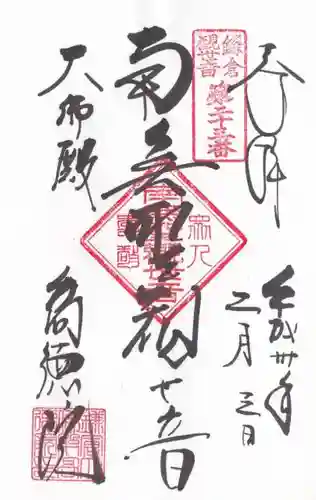 奉拝
平成卅年
二月三日
鎌倉
観音
第二十三番
南無聖観世音
大佛殿
高徳院